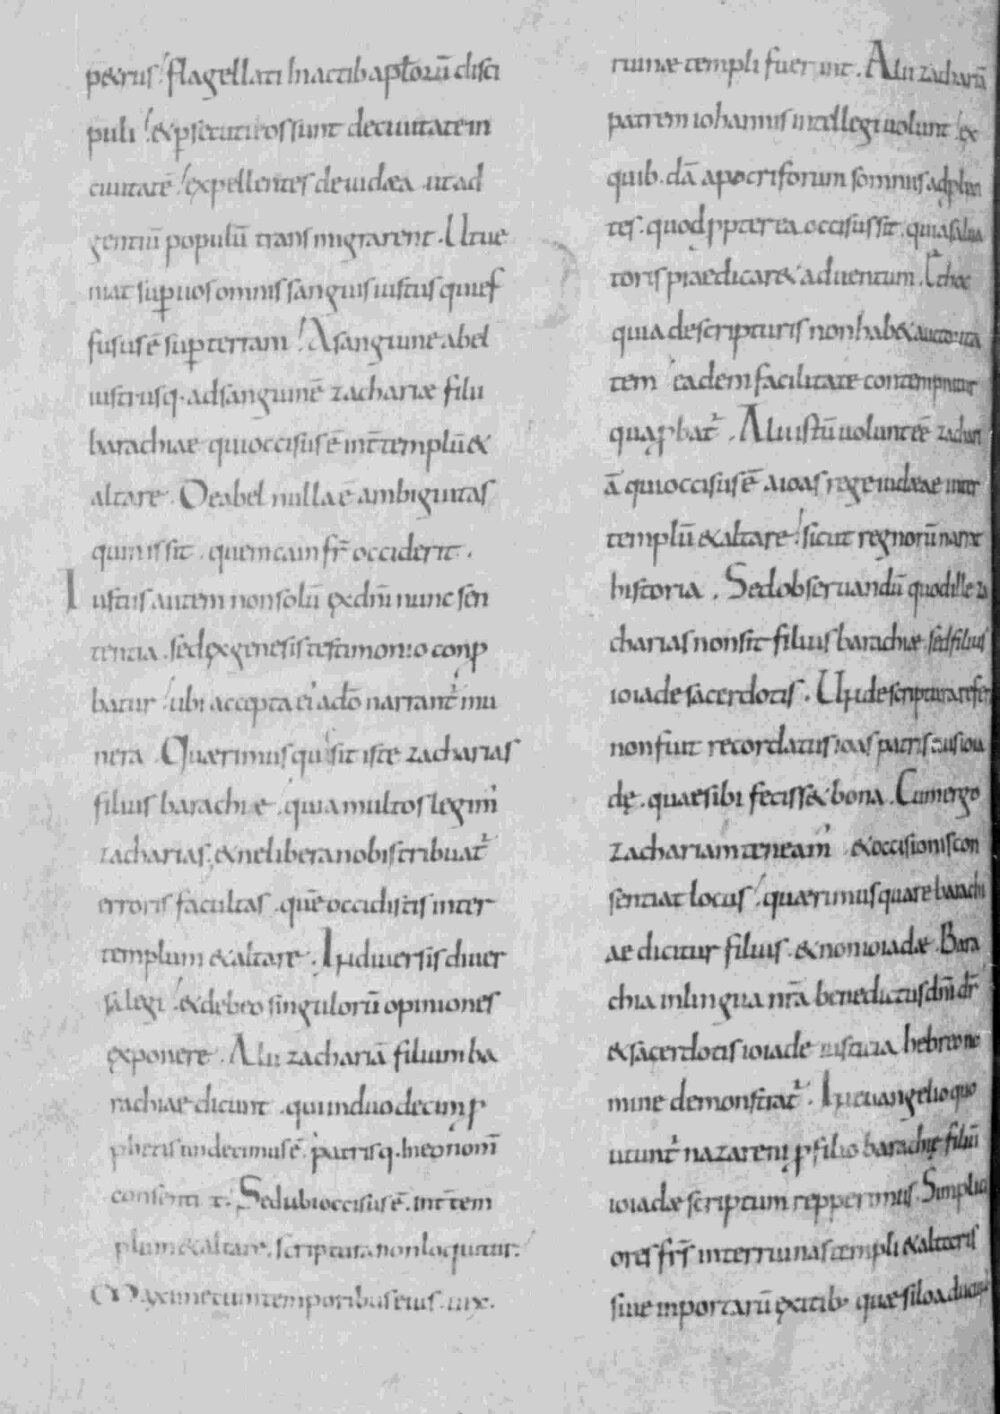 petrus. flagellati in actib apl̄orū disci
puli. et psecuti uos sunt de ciuitate in
ciuitatē. expellentes de iudaea. ut ad
gentiū populū transmigrarent. Ut ue
niat sup uos omnis sanguis iustus qui ef
fusus ē sup terram. A sanguine abel
iusti usq. ad sanguinē zachariae filii
barachiae qui occisus ē int̄ templū et
altare. De abel nulla ē ambiguitas
quin is sit. quem cain fr̄ occiderit.
Iustus autem non solū ex dn̄i nunc sen
tentia. sed ex genesis testimonio conp
batur. ubi accepta ei' a dō narrant' mu
nera. Quaerimus qui sit iste zacharias
filius barachiae. quia multos legim'
zacharias. et ne libera nobis tribuat'
erroris facultas. quē occidistis inter
templum et altare. In diuersis diuer
sa legi. et debeo singulorū opiniones
exponere. Alii zachariā filium ba
rachiae dicunt. qui in duodecim p
phetis undecimus ē. patrisq. in eo nom̄
consentit. Sed ubi occisus ē. int̄ tem
plum et altare. scriptura non loquitur.
Maxime cum temporibus eius. uix.
ruinae templi fuerunt. Alii zachariā
patrem iohannis intellegi uolunt. ex
quib. dā apocriforum somniis adproban
tes. quod ppterea occisus sit. quia salua
toris praedicaret aduentum. hoc
quia de scripturis non habet auctorita
tem eadem facilitate contempnitur
qua pbat'. Alii istū uolunt eē zachari
ā qui occisus ē a ioas rege iudaeae inter
templū et altare. sicut regnorū narrat
historia. Sed obseruandū quod ille za
charias non sit filius barachiae. sed filius
ioiadae sacerdotis. Unde scriptura refer
non fuit recordatus ioas patris eius ioia
dę. quae sibi fecisset bona. Cum ergo
zachariam teneam' et occisionis con
sentiat locus. quaerimus quare barachi
ae dicitur filius. et non ioiadae. Bara
chia in lingua nr̄a benedictus dn̄i dr̄
et sacerdotis ioiadae iusticia hebreo no
mine demonstrat'. In euangelio quo
utunt' nazareni p filio barachię filiū
ioiadae scriptum repperimus. Simplici
ores fr̄s inter ruinas templi et altaris
siue in portarū exitib; quae siloa ducunt